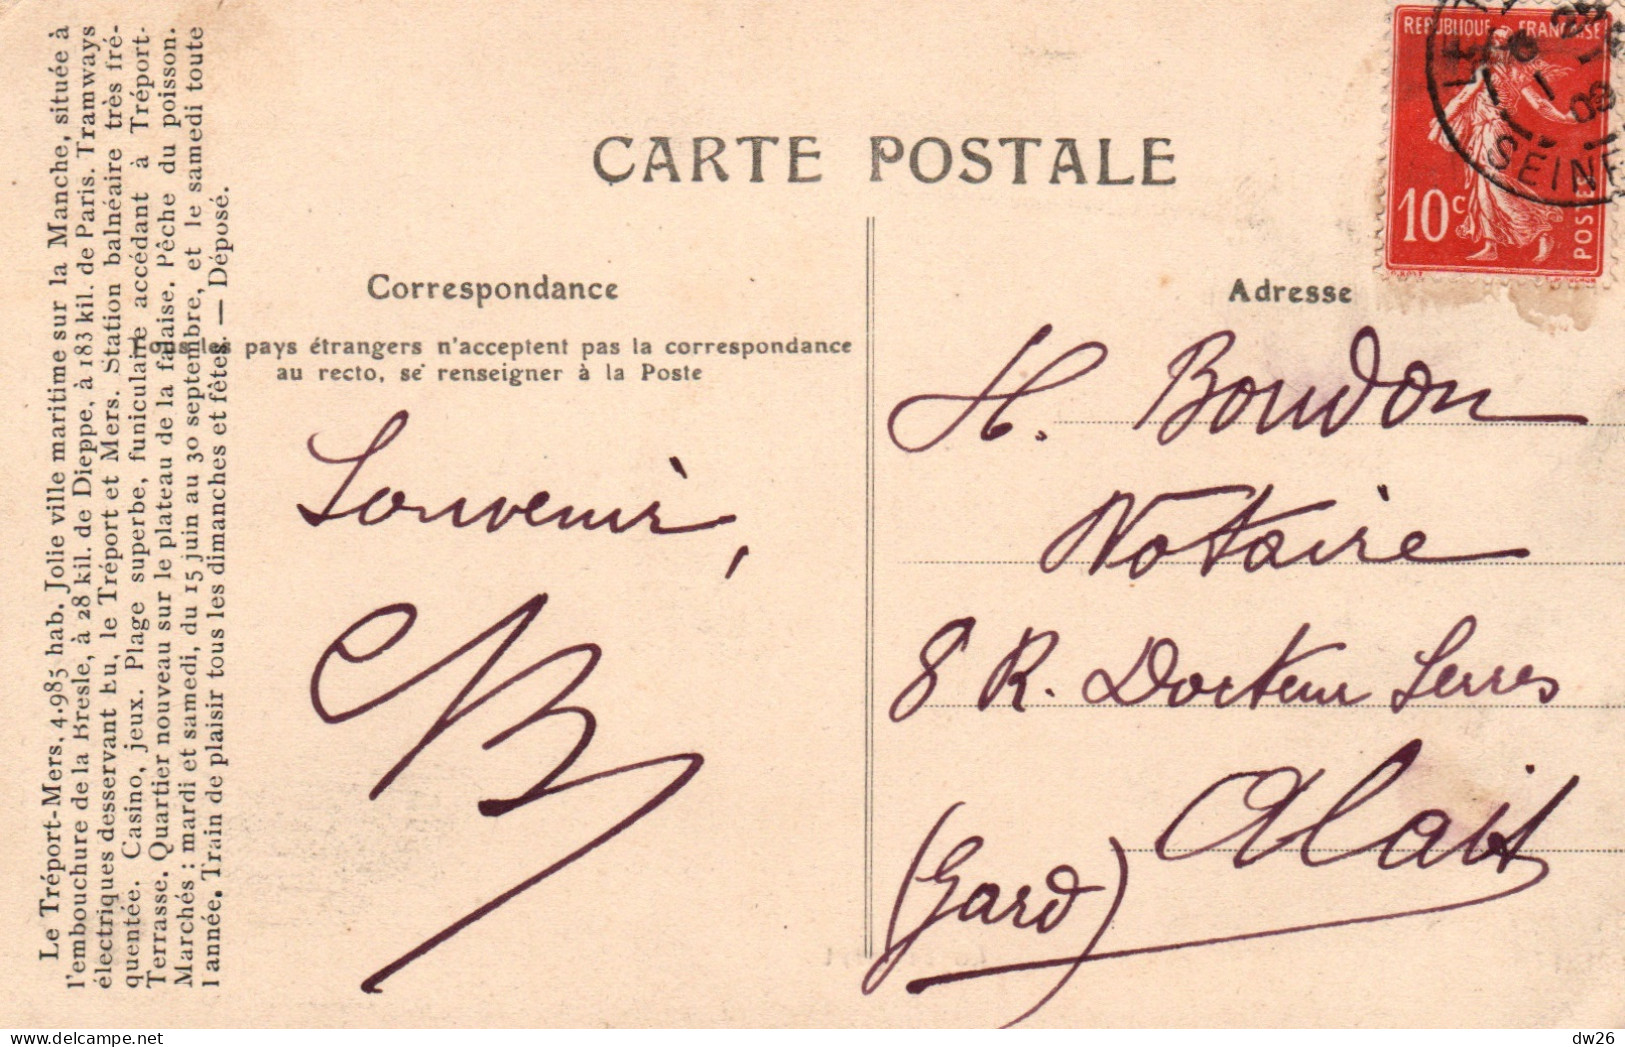 Le Tréport-Mers. 4.985 hab. Jolie ville maritime sur la Manche, située à
l'embouchure de la Bresle, à 28 kil. de Dieppe, à 183 kil. de Paris. Tramways
électriques desservant Eu, le Tréport et Mers. Station balnéaire très fré-
quentée. Casino, jeux. Plage superbe, funiculaire accédant à Tréport-
Terrasse. Quartier nouveau sur le plateau de la falaise. Pêche du poisson.
Marchés : mardi et samedi, du 15 juin au 30 septembre, et le samedi toute
l'année. Train de plaisir tous les dimanches et fêtes. — Déposé.
CARTE POSTALE
Correspondance
les pays étrangers n'acceptent pas la correspondance
au recto, se renseigner à la Poste
Souvenir,
CB
Adresse
REPUBLIQUE FRANÇAISE
10c
POSTES
09
SEINE
H. Boudon
Notaire
8 R. Docteur Serres
Alais
(Gard)
dw26